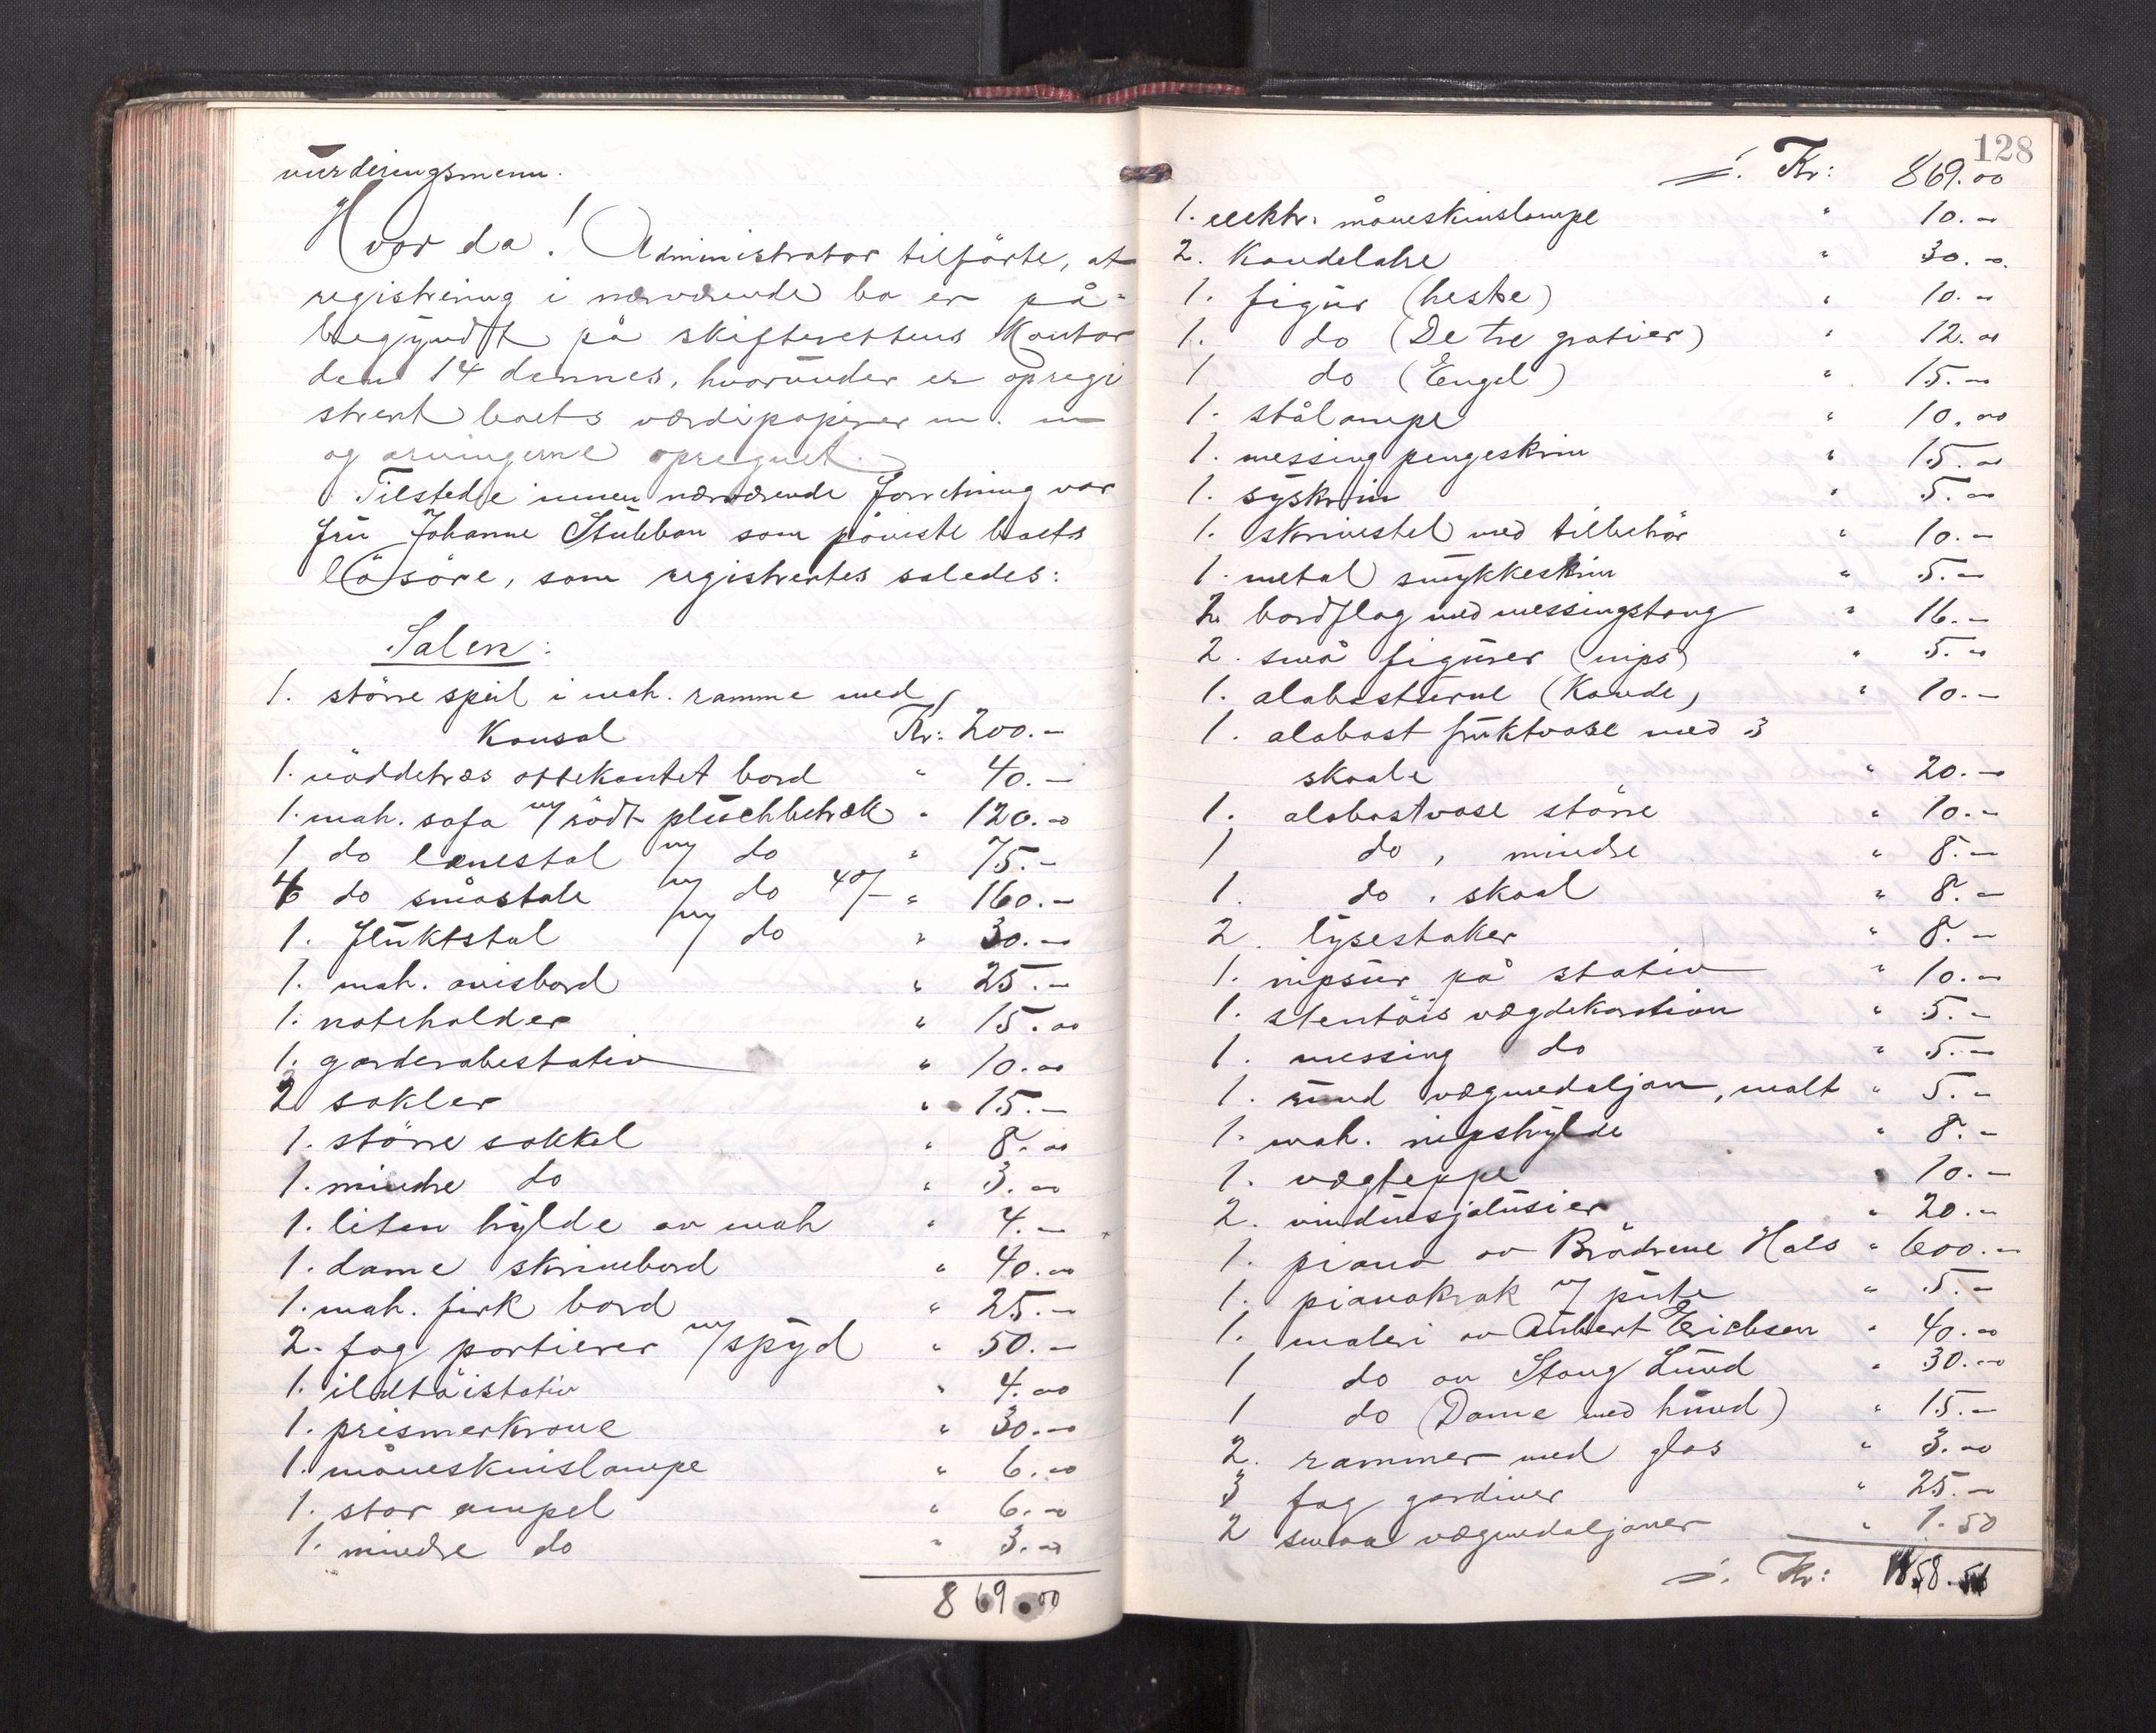 vurderingsmenn.
Hvor da! Administrator tilförte, at
registrering i nærværende bo er på-
begyndt på skifterettens Kontor
den 14 dennes, hvorunder er opregi
strert boets værdipapirer m. m
og arvingerne opregnet.
Tilstede innen nærværende forretning var
fru Johanne Stubban som påviste boets
lösöre, som registrertes saledes:
Salen:
1. större speil i mah. ramme med
Konsol Kr: 200.-
1. nöddetræs ottekantet bord " 40.-
1. mah. sofa m/ rödt plüschbetræk " 120.00
1 do lænestol m/ do " 75.-
4 do småstole m/ do 40/- " 160.-
1. fluktstol m/ do " 30.-
1. mah. avisbord " 25.-
1. noteholder " 15.00
1. garderobestativ " 10.00
2 sokler " 15.-
1. större sokkel " 8.00
1. mindre do " 3.00
1. liten hylde av mah " 4.-
1. dame skrivebord " 40.00
1. mah. firk bord " 25.-
2. fag portierer m/ spyd " 50.-
1. ildtöistativ " 4.00
1. prismerkrone " 30.-
1. måneskinslampe " 6.00
1. stor ampel " 6.-
1. mindre do " 3.00
869.00
128
Kr: 869.00
1. elektr. måneskinslampe " 10.-
2. Kandelabre " 30.-
1. figur (heste) " 10.-
1. do (De tre gratier) " 12.00
1 do (Engel) " 15.-
1. stålampe " 10.00
1. messing pengeskrin " 15.00
1. syskrin " 5.00
1. skrivestel med tilbehör " 10.-
1. metal smykkeskrin " 5.-
2 bordflag med messingstang " 16.-
2. små figurer (nips) " 5.00
1. alabasturne (Kande) " 10.-
1. alabast fruktvase med 3
skaale " 20.-
1. alabastvase större " 10.-
1 do, mindre " 8.-
1. do, skaal " 8.-
2. lysestaker " 8.-
1. nipsur på stativ " 10.-
1. stentöis vægdekoration " 5.-
1. messing do " 5.-
1. rund vægmedaljon, malt " 5.-
1. mah. nipshylde " 8.-
1. vægteppe " 10.-
2. vindusjalusier " 20.-
1. piano av Brödrene Hals " 600.-
1. pianokrak m/ pute " 5.-
1. maleri av Aubert Erichsen " 40.00
1 do av Stang Lund " 30.00
1 do (Dame med hund) " 15.-
2. rammer med glas " 3.00
3 fag gardiner " 25.-
2 smaa vægmedaljoner " 1.50
Kr: 1858.50